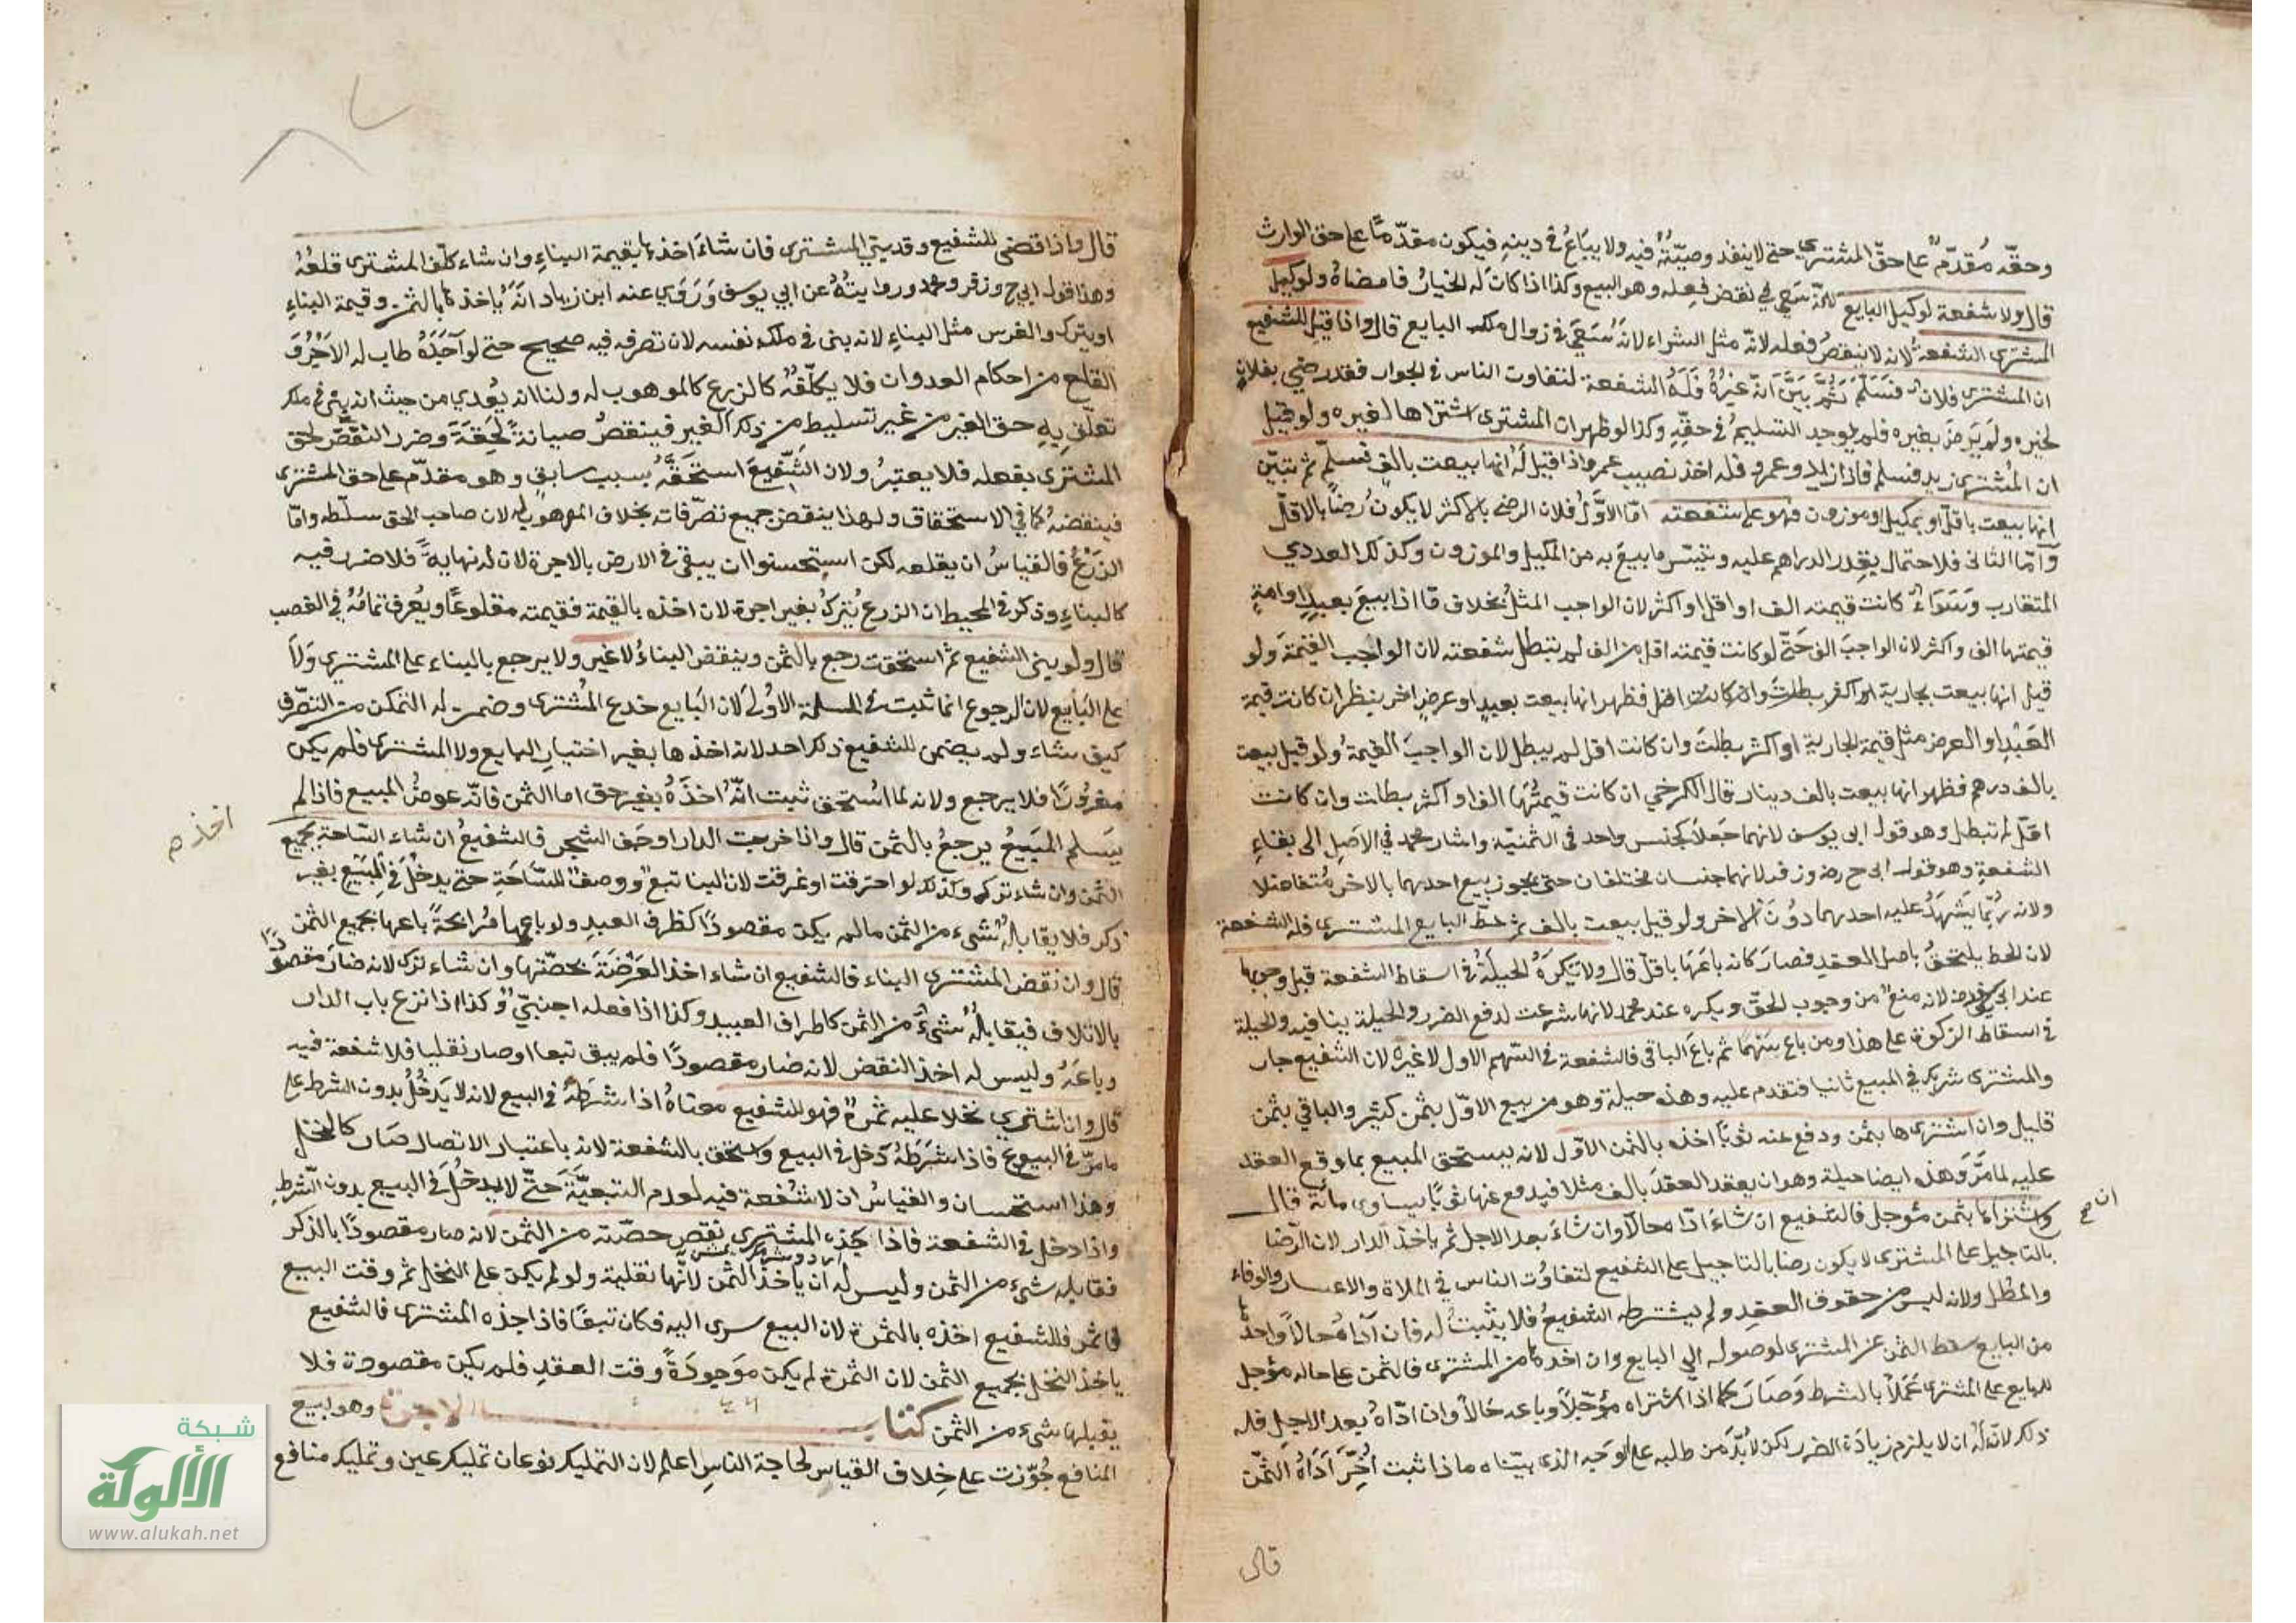 وحقّه مُقدّم على حقّ المشتري حتى لاينفذ وصيّتُهُ فيه ولا يبَاعُ في دينِه فيكون مقدّماً على حق الوارث
قال ولا شفعة لوكيل البايع لانّه سَعَى في نقض فعله وهو البيع وكذا اذا كانَ له الخيارُ فامضاهُ ولوكيل
المشترى الشفعة لانه لاينقضُ فعله لانّه مثل الشراء لانَّه سَعَى في زوال ملك البايع قال واذا قيل للشفيع
ان المشترى فلان فسَلَّمَ ثُمَّ بيَنَ انّه غَيرُهُ فَلَهُ الشفعة لتفاوت الناس في الجوار فقد رضي بفلانٍ
لخيره ولَم يَرضَ بغيره فلم يوجد التسليمُ في حقِّهِ وكذا لو ظهر ان المشترى اشتراها لغيره ولو قيل
ان المُشترى زيد فسلم فاذا زيد وعمرو فله اخذ نصيب عمرو واذا قيل لَهُ انها بيعت بالف فسلَّم ثم تبيّن
انها بيعت باقلّ او بمكيل او موزون فهو على شفعته امّا الاوَّلُ فلان الرضى بالاكثر لا يكون رِضاً بالاقلّ
وَامّا الثانى فلاحتمال تعذر الدراهم عليه وتيسّر ما بيعَ به من المكيل والموزون وكذلك العددي
المتقارب وَسَوَاءٌ كانت قيمته الف او اقل او اكثر لان الواجب المثلُ بخلاف مَا اذا بيعَ بعبدٍ او امةٍ
قيمتها الف واكثر لان الواجبَ الف حَتّى لو كانت قيمته اقل من الف لم تبطل شفعته لان الواجب القيمَة ولو
قيل انها بيعت بجارية فظهر انها بيعت بعبدٍ او عرضٍ اخر ينظر ان كانت قيمة
العَبْدِ او العرض مثل قيمة الجارية او اكثر بطلتْ وان كانت اقل لم يبطل لان الواجبَ القيمةُ ولو قيل بيعت
بالف درهم فظهر انها بيعت بالف دينار قال الكرخي ان كانت قيمَتُهَا الف او اكثر بطلت وان كانت
اقلّ لم تبطل وهو قول ابى يوسف لانهما جَعلا كجنس واحد في الثمنيّة واشار محمد في الاَصِل الى بقاءِ
الشفعةِ وهو قول ابى ح رض وزفر لانهما جنسان مختلفان حتى يجوز بيع احدهما بالاخر مُتفاضلا
ولانه رُبّما يَسْهَلُ عليه احدهما دُونَ الاخر ولو قيل بيعت بالف ثم حَطّ البايع المشترى فله الشفعة
لان الحط يلتحق باصل العقدِ فصارَ كانه باعَهَا باقلّ قال ولا تُكرَهُ الحيلَةُ في اسقاط الشفعة قبل وجوبها
عند ابى يوسف لانه منعٌ من وجوب الحقّ ويكره عند محمد لانها شرعت لدفع الضرر والحيلة ينافيه والحيلة
في اسقاط الزكوة على هذا ومن باع سَهْماً ثم باعَ الباقى فالشفعة في السّهم الاول لا غيره لان الشفيع جار
والمشترى شريك في المبيع ثانيا فتقدم عليه وهذه حيلة وهو من بيع الاوّل بثمن كثير والباقي بثمن
قليل وان اشترى ها بثمن ودفع عنه ثوبًا اخذه بالثمن الاوّل لانه يستحق المبيع بما وقع العقد
عليه لما مَرَّ وَهذه ايضا حيلة وهو ان يعقد العقدَ بالف مثلا فيدفع عنها ثوبًا يساوى مائة قال
واشتراها بثمن مُؤجل فالشفيع ان شاءَ ادّا محالاً وان شاءَ بعد الاجل ثم ياخذ الدار لان الرّضا
ان صح
بالتاجيل على المشترى لا يكون رضا بالتاجيل على الشفيع لتفاوُت الناس في الملاة والاعسار والوفاء
والمطل ولانه ليس من حقوق العقدِ ولم يشترطه الشفيعُ فلا يثبتُ له فان ادَّاهُ حالاً واخذها
من البايع سقط الثمن عن المشترى لوصوله الى البايع وان اخذها من المشترى فالثمن على حاله مؤجل
للبايع على المشترى عَمَلاً بالشرط وَصَارَ كما اذا اشتراه مُؤجّلاً وباعه حَالاً وان ادّاهُ بعد الاجل فله
ذلك لانّه لَهُ ان لا يلزم زيادة الضرر لكن لا بُدَّ من طلبه على الوَجه الذى بيّناه ماذا ثبت اُخِّرَ اَدَاءُ الثمَنِ
قال
قال واذا قضى للشفيع وقد بنى المشترى فان شاءَ اخذها بقيمة البناءِ وان شاء كلّف المشترى قلعَهُ
وهذا قول ابى ح وزفر ومحمد وروايتُهُ عن ابي يوسف وَرَوَى عنه ابن زياد انَّه يُاخذها بالثمن وقيمة البناءِ
او يترك والغرس مثل البناءِ لانه بنى في ملك نفسه لان تصرفه فيه صحيح حتى لو آجَرَهُ طاب له الاَجْرُ وَ
القلع من احكام العدوان فلا يكلّفهُ كالزرع كالموهوب له ولنا انه يُعدي من حيث انه بنى في ملك
تعلّق بِهِ حق الغير من غير تسليط من ذلك الغير فينقضُ صيانةً لحقِّه وضرر النقض لحق
المشترى بفعله فلا يعتبرُ ولان الشّفيعَ استحَقّهُ بسبب سابقٍ وهو مقدّم على حق المشترى
فينقضه كما في الاستحقاق ولهذا ينقض جميع تصرّفاته بخلاف الموهوب له لان صاحب الحق سلّطه وامّا
الزَرْعُ فالقياسُ ان يقلعه لكن استحسنوا ان يبقى في الارض بالاجرة لان له نهايةً فلا ضرر فيه
كالبناءِ وذكر في المحيط ان الزرع يُتركُ بغير اجرة لان اخذه بالقيمة فقيمته مقلوعًا ويُعرف تمامُهُ في الغصب
قال ولو بنى الشفيع ثم استحقت رجع بالثمن وينقض البناءُ لا غير ولا يرجع بالبناء على المشترى وَلاَ
على البَايع لان الرجوع انما ثبت في المسئلة الاُولى لان البَايع خدع المُشترى وضمن له التمكن من التصرّف
كيف شاء ولم يضمن للشفيع ذلك احد لانه اخذها بغير اختيار البايع ولا المشترى فلم يكن
مغرُورًا فلا يرجع ولانه لما استحق ثبت انّهُ اخذَهُ بغير حق اما الثمن فانّه عوضُ المبيع فاذا لم
يسَلم المَبيعُ يرجعُ بالثمن قال واذا خربت الدار او جَف الشجر فالشفيعُ ان شاء اخذ السّاحة بجميع
الثمن وان شاء ترك وكذلك لو احترقت او غرقت لان البنا تبعٌ ووصفٌ للسَّاحَةِ حتى يدخُلَ في المَبيع بغير
ذكر فلا يقابلُهُ شىء من الثمن مالم يكن مقصودًا كطرف العبدِ ولو باعها مُرابحةً باعها بجميع الثمن
قال وان نقض المشترى البناء فالشفيع ان شاء اخذ العَرْصَةَ بحصّتها وان شاء ترك لانه صَارَ مقصودًا
بالاتلاف فيقابلُهُ شىءٌ من الثمن كاطراف العبيد وكذا اذا فعله اجنبيّ وكذا اذا نزع باب الدار
وباعَهُ وليس له اخذ النقض لانه صَار مقصودًا فلم يبق تبعا او صار نقليا فلا شفعة فيه
قال وان اشترى نخلا عليه ثمرة فهو للشفيع معناهُ اذا شرَطَهُ في البيع لانه لا يَدْخُلُ بدون الشرط على
مامرّ في البيوع فاذا شَرَطَهُ دَخل في البيع واستحق بالشفعة لانه باعتبار الاتصال صَار كالنخل
وهذا استحسان والقياسُ ان لا شُفعة فيه لعدم التبعيَّة حَتّى لا يدخُلَ في البيع بدون الشّرطِ
واذا دخل في الشفعة فاذا جذه المشترى نقص حصّته من الثمن لانه صار مقصودًا بالذكر
فقابله شىء من الثمن وليس له ان ياخذ الثمن لانّها نقلية ولو لم يكن على النخل ثمر وقت البيع
فاثمر فللشفيع اخذه بالثمرة لان البيع سرى اليه فكان تبعًا فاذا جذه المشترى فالشفيع
ياخذ النخل بجميع الثمن لان الثمرة لم يكن مَوجودَةً وقت العقدِ فلم يكن مقصودة فلا
يقبلها شىء من الثمن كتاب الاجارة وهو بيع
المنافع جُوّزت على خِلاف القياس لحاجة الناس اعلم لان التمليك نوعان تمليك عين وتمليك منافع
شبكة
الألوكة
www.alukah.net